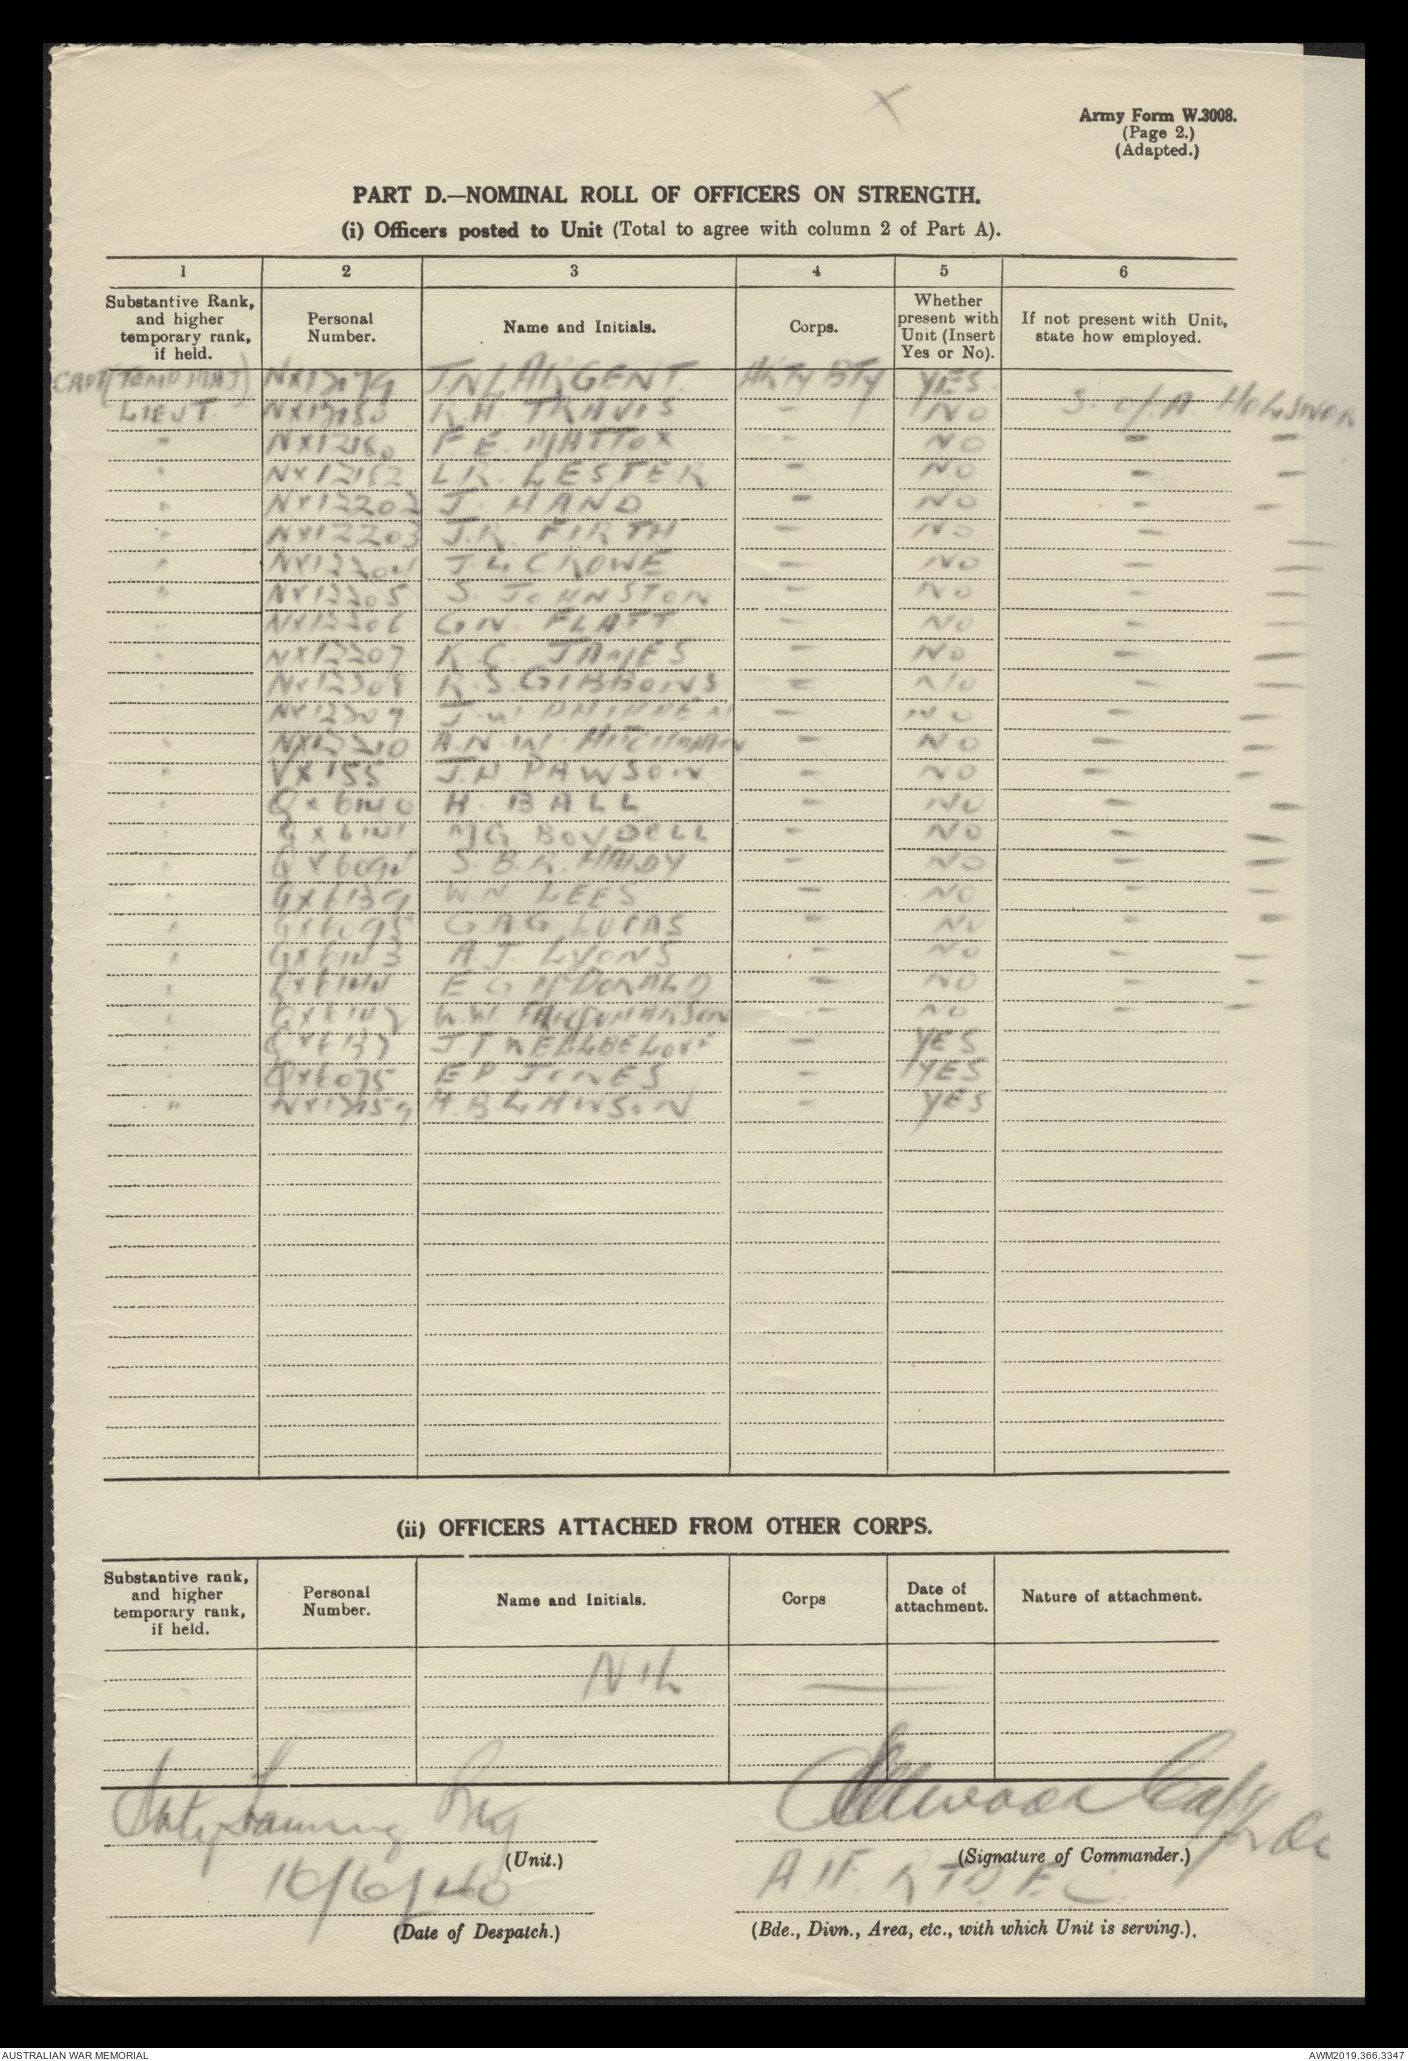 X
Army Form W.3008.
(Page 2.)
(Adapted.)
PART D.—NOMINAL ROLL OF OFFICERS ON STRENGTH.
(i) Officers posted to Unit (Total to agree with column 2 of Part A).
1 2 3 4 5 6
Substantive Rank, and higher temporary rank, if held. Personal Number. Name and Initials. Corps. Whether present with Unit (Insert Yes or No). If not present with Unit, state how employed.
CAPT (TEMP MAJ) J.N.L. ARGENT. ARTY BTY YES.
LIEUT. R.H. TRAVIS - NO S. of A HOLSWOR
" NX12180 F.E. MATTOX - NO - -
" NX12182 L.R. LESTER - NO - -
" NX12202 J. HAND - NO - -
" NX12203 J.R. FIRTH - NO - -
" NX12204 J.L. CROWE - NO - -
" NX12205 S. JOHNSTON - NO - -
" NX12206 G.N. FLATT - NO - -
" NX12207 K.C. JAMES - NO - -
" NX12208 R.S. GIBBONS - NO - -
" NX12209 J.W. - NO - -
" NX12210 A.N.W. HITCHMAN - NO - -
" VX155 J.N. PAWSON - NO - -
" QX6140 H. BALL - NO - -
" QX6141 M.G. BOYDELL - NO - -
" QX6094 S.B.R. HARDY - NO - -
" QX6139 W.N. LEES - NO - -
" QX6095 G.A.G. LUCAS - NO - -
" QX6143 A.J. LYONS - NO - -
" QX6144 E G McDONALD - NO - -
" W.W. - NO - -
" QX6137 J T WELLBELOVE - YES
" QX6075 E P JONES - YES
" NX12159 H.B. LAWSON - YES
(ii) OFFICERS ATTACHED FROM OTHER CORPS.
Substantive rank, and higher temporary rank, if held. Personal Number. Name and Initials. Corps Date of attachment. Nature of attachment.
NIL
Arty Training Reg
(Unit.)
Capt
(Signature of Commander.)
16/6/40
(Date of Despatch.)
A.I.F. R.T.D. E.C.
(Bde., Divn., Area, etc., with which Unit is serving.).
AUSTRALIAN WAR MEMORIAL
AWM2019.366.3347